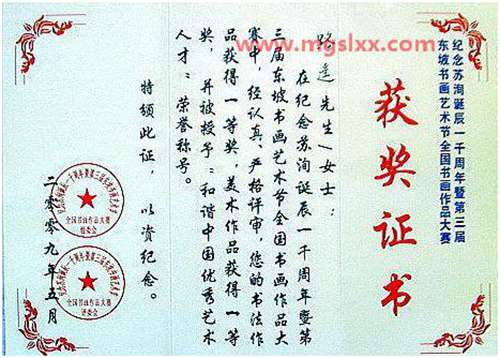 www.mgslxx.com
纪念苏洵诞辰一千周年暨第三届
东坡书画艺术节全国书画作品大赛
获奖证书
路遥 先生/女士：
在纪念苏洵诞辰一千周年暨第
三届东坡书画艺术节全国书画作品大
赛中，经认真、严格评审，您的书法作
品获得一等奖，美术作品获得一等
奖，并被授予“和谐中国优秀艺术
人才”荣誉称号。
特颁此证，以资纪念。
二〇〇九年五月
全国书画作品大赛
组委会
全国书画作品大赛
评委会